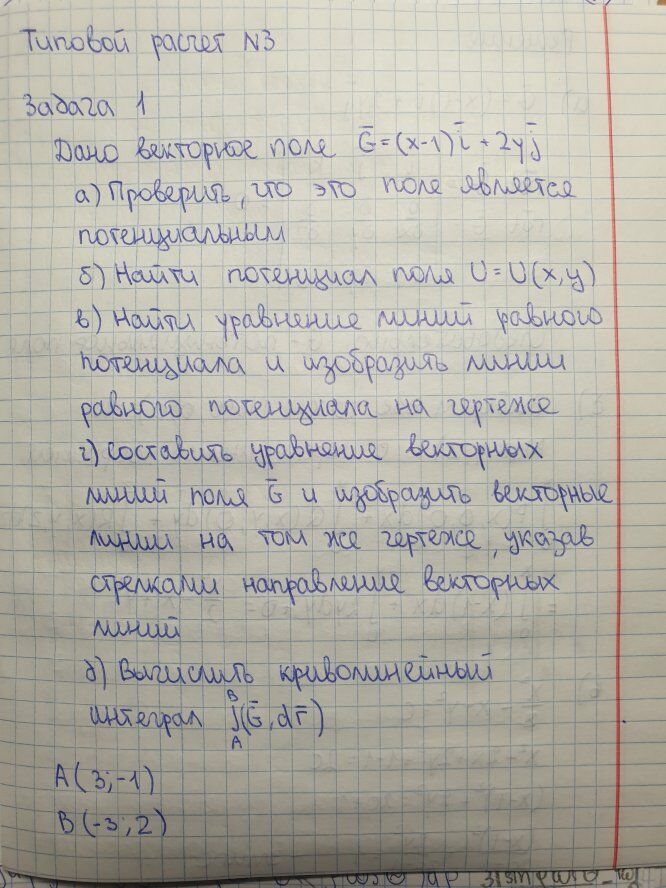 Типовой расчет N3
Задача 1
Дано векторное поле G̅=(x-1)i̅ + 2yj̅
а) Проверить, что это поле является
потенциальным
б) Найти потенциал поля U=U(x,y)
в) Найти уравнение линий равного
потенциала и изобразить линии
равного потенциала на чертеже
г) Составить уравнение векторных
линий поля G̅ и изобразить векторные
линии на том же чертеже, указав
стрелками направление векторных
линий
д) Вычислить криволинейный
B
интеграл ∫(G̅, dr̅)
A
A(3;-1)
B(-3;2)